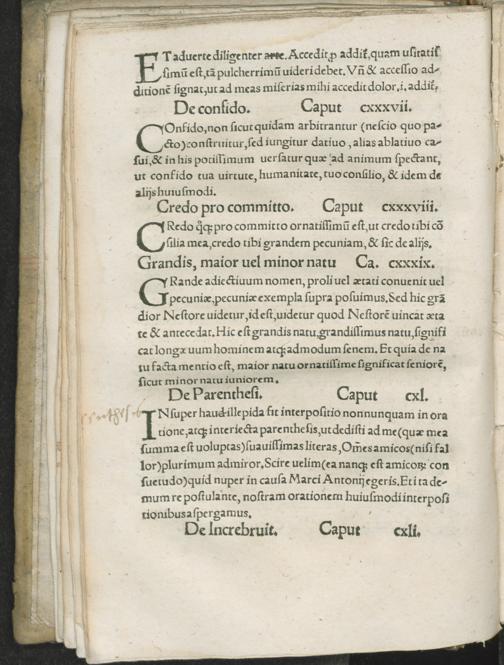 ET aduerte diligenter arte. Accedit, ꝓ addit̃, quam usitatis
simũ est, tã pulcherrimũ uideri debet. Vñ & accessio ad-
ditionẽ signat, ut ad meas miserias mihi accedit dolor, i. addit̃,
De confido. Caput cxxxvii.
COnfido, non sicut quidam arbitrantur (nescio quo pa-
cto) construitur, sed iungitur datiuo, alias ablatiuo ca-
sui, & in his potissimum uersatur quæ ad animum spectant,
ut confido tua uirtute, humanitate, tuo consilio, & idem de
alijs huiusmodi.
Credo pro committo. Caput cxxxviii.
CRedo q̃q; pro committo ornatissimũ est, ut credo tibi cõ
silia mea, credo tibi grandem pecuniam, & sic de alijs.
Grandis, maior uel minor natu Ca. cxxxix.
GRande adiectiuum nomen, proli uel ætati conuenit uel
pecuniæ, pecuniæ exempla supra posuimus. Sed hic grã
dior Nestore uidetur, id est, uidetur quod Nestorẽ uincat æta
te & antecedat. Hic est grandis natu, grandissimus natu, signifi
cat longæuum hominem atq; admodum senem. Et quia de na
tu facta mentio est, maior natu ornatissime significat seniorẽ,
sicut minor natu iuniorem.
De Parenthesi. Caput cxl.
INsuper haud illepida fit interpositio nonnunquam in ora
tione, atq; interiecta parenthesis, ut dedisti ad me (quæ mea
summa est uoluptas) suauissimas literas, Om̃es amicos (nisi fal
lor) plurimum admiror. Scire uelim (ea nanq; est amicoꝝ con
suetudo) quid nuper in causa Marci Antonij egeris. Et ita de-
mum re postulante, nostram orationem huiusmodi interposi
tionibus aspergamus.
De Increbruit. Caput cxli.